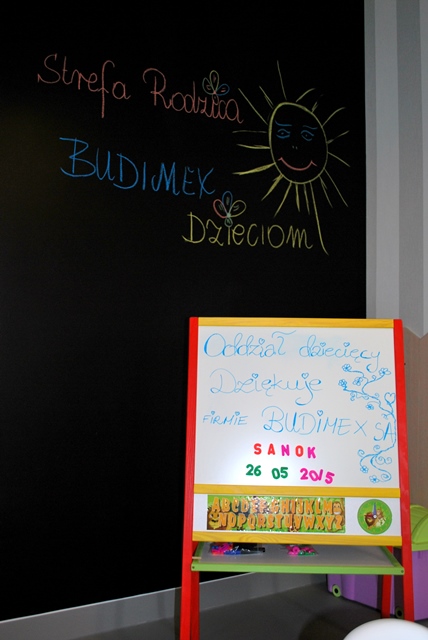 Strefa Rodzica
BUDIMEX
DZIECIOM
Oddział dziecięcy
Dziękuje
FIRMIE BUDIMEX SA
SANOK
26 05 2015
ABCDEFGHIJKLM
NOPQRSTUVWXYZ